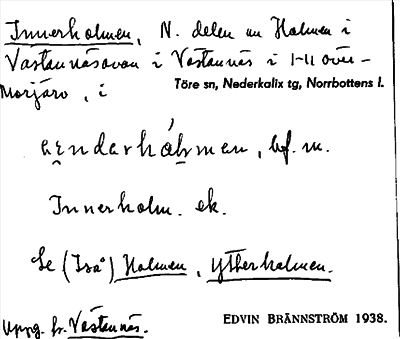 Innerholmen, N. delen av Holmen i
Västannäsavan i Västannäs i 1-11 över-
Morjärv, i Töre sn, Nederkalix tg, Norrbottens l.
bf. m.
Innerholm. ek.
Se (Iså) Holmen, Ytterholmen.
Uppg. fr. Västannäs. EDVIN BRÄNNSTRÖM 1938.